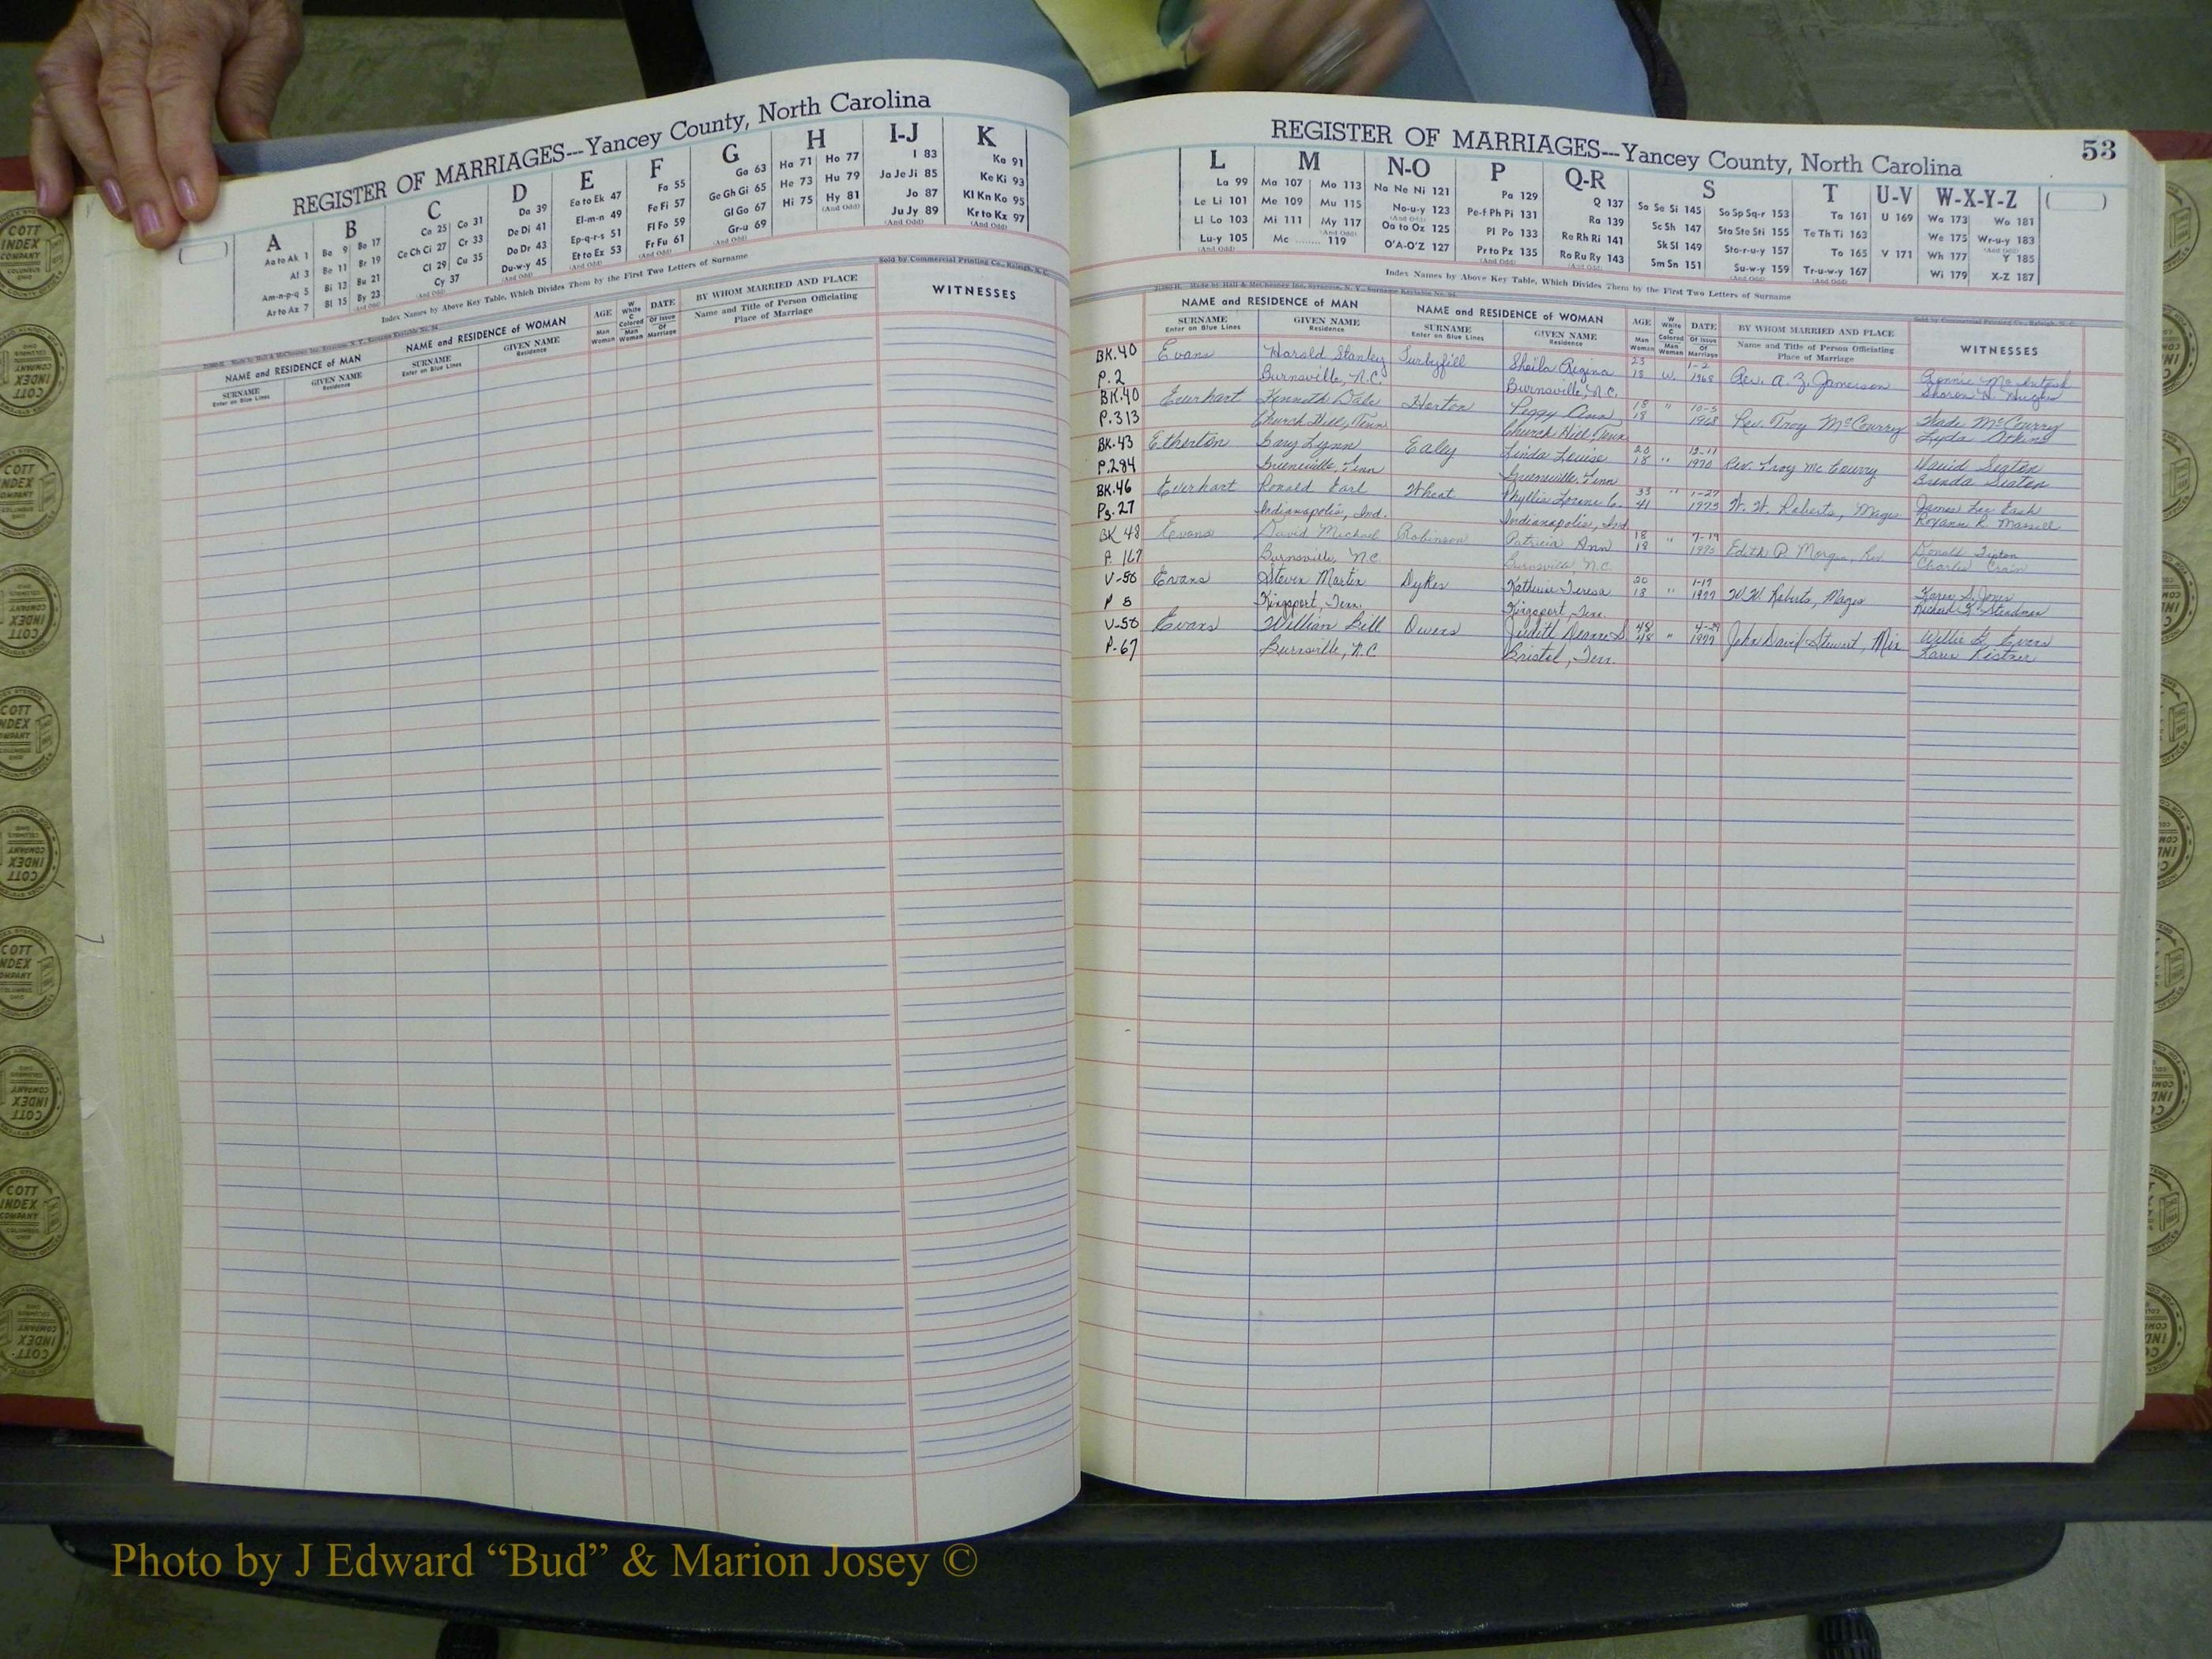 REGISTER OF MARRIAGES---Yancey County, North Carolina
A B C D E F G H I-J K
Aa to Ak 1 Ba 9 Bo 17 Ca 25 Co 31 Da 39 Ea to Ek 47 Fa 55 Ga 63 Ha 71 Ho 77 I 83 Ka 91
Al 3 Be 11 Br 19 Ce Ch Ci 27 Cr 33 De Di 41 El-m-n 49 Fe Fi 57 Ge Gh Gi 65 He 73 Hu 79 Ja Je Ji 85 Ke Ki 93
Am-n-p-q 5 Bi 13 Bu 21 Cl 29 Cu 35 Do Dr 43 Ep-q-r-s 51 Fl Fo 59 Gl Go 67 Hi 75 Hy 81 Jo 87 Kl Kn Ko 95
Ar to Az 7 Bl 15 By 23 Cy 37 Du-w-y 45 Et to Ez 53 Fr Fu 61 Gr-u 69 Ju Jy 89 Kr to Kz 97
Index Names by Above Key Table, Which Divides Them by the First Two Letters of Surname
Sold by Commercial Printing Co., Raleigh, N. C.
NAME and RESIDENCE of MAN NAME and RESIDENCE of WOMAN AGE W White C Colored DATE Of Issue Of Marriage BY WHOM MARRIED AND PLACE WITNESSES
SURNAME Enter on Blue Lines GIVEN NAME Residence SURNAME Enter on Blue Lines GIVEN NAME Residence Man Woman Man Woman Name and Title of Person Officiating Place of Marriage
REGISTER OF MARRIAGES---Yancey County, North Carolina 53
L M N-O P Q-R S T U-V W-X-Y-Z
La 99 Ma 107 Mo 113 Na Ne Ni 121 Pa 129 Q 137 Sa Se Si 145 So Sp Sq-r 153 Ta 161 U 169 Wa 173 Wo 181
Le Li 101 Me 109 Mu 115 No-u-y 123 Pe-f Ph Pi 131 Ra 139 Sc Sh 147 Sta Ste Sti 155 Te Th Ti 163 We 175 Wr-u-y 183
Ll Lo 103 Mi 111 My 117 Oa to Oz 125 Pl Po 133 Re Rh Ri 141 Sk Sl 149 Sto-r-u-y 157 To 165 V 171 Wh 177 Y 185
Lu-y 105 Mc 119 O'A-O'Z 127 Pr to Pz 135 Ro Ru Ry 143 Sm Sn 151 Su-w-y 159 Tr-u-w-y 167 Wi 179 X-Z 187
Index Names by Above Key Table, Which Divides Them by the First Two Letters of Surname
Made by Hall & McChesney, Inc. Syracuse, N. Y.
NAME and RESIDENCE of MAN NAME and RESIDENCE of WOMAN AGE W White C Colored DATE Of Issue Of Marriage BY WHOM MARRIED AND PLACE WITNESSES
SURNAME Enter on Blue Lines GIVEN NAME Residence SURNAME Enter on Blue Lines GIVEN NAME Residence Man Woman Man Woman Name and Title of Person Officiating Place of Marriage
BK.40 Evans Harold Stanley Turbyfill Sheila Regina 23 1-2 Ronnie McIntosh
P.2 Burnsville, N.C. Burnsville, N.C. 18 W. 1968 Rev. A. Z. Jamerson Sharon H. Hughes
BK.40 Everhart Kenneth Dale Horton Peggy Ann 18 " 10-5 Wade McCurry
P.313 Church Hill, Tenn Church Hill Tenn 18 1968 Rev. Troy McCourry Lyda
BK.43 Etherton Gary Lynn Ealey Linda Louise 20 " David Seaton
P.284 Greeneville, Tenn Greeneville, Tenn 18 1970 Rev. Troy McCourry Brenda Seaton
BK.46 Everhart Ronald Earl Wheat Phyllis Lorene 33 " 1-27 James
Pg.27 Indianapolis, Ind. Indianapolis, Ind. 41 1973 W. W. Roberts, Mages Roxann R. Massell
BK 48 Evans David Michael Robinson Patricia Ann 18 " 7-19 Donald Tipton
P. 167 Burnsville, N.C. Burnsville, N.C. 18 1975 Edith P. Morgan, Rev Charles Crain
V-50 Evans Steven Martin Dykes Katherine Teresa 20 " 1-17 Karen S. Jones
P 5 Kingsport, Tenn. Kingsport, Tenn. 18 1977 W.W. Roberts, Mages Richard
V-50 Evans William Bill Owens Judith Deanne S. 48 " 4-29 Willie G. Evans
P-67 Burnsville, N.C Bristol, Tenn. 48 1977 John David Stewart, Min Karen Kistner
COTT INDEX COMPANY COLUMBUS OHIO
Photo by J Edward “Bud” & Marion Josey ©